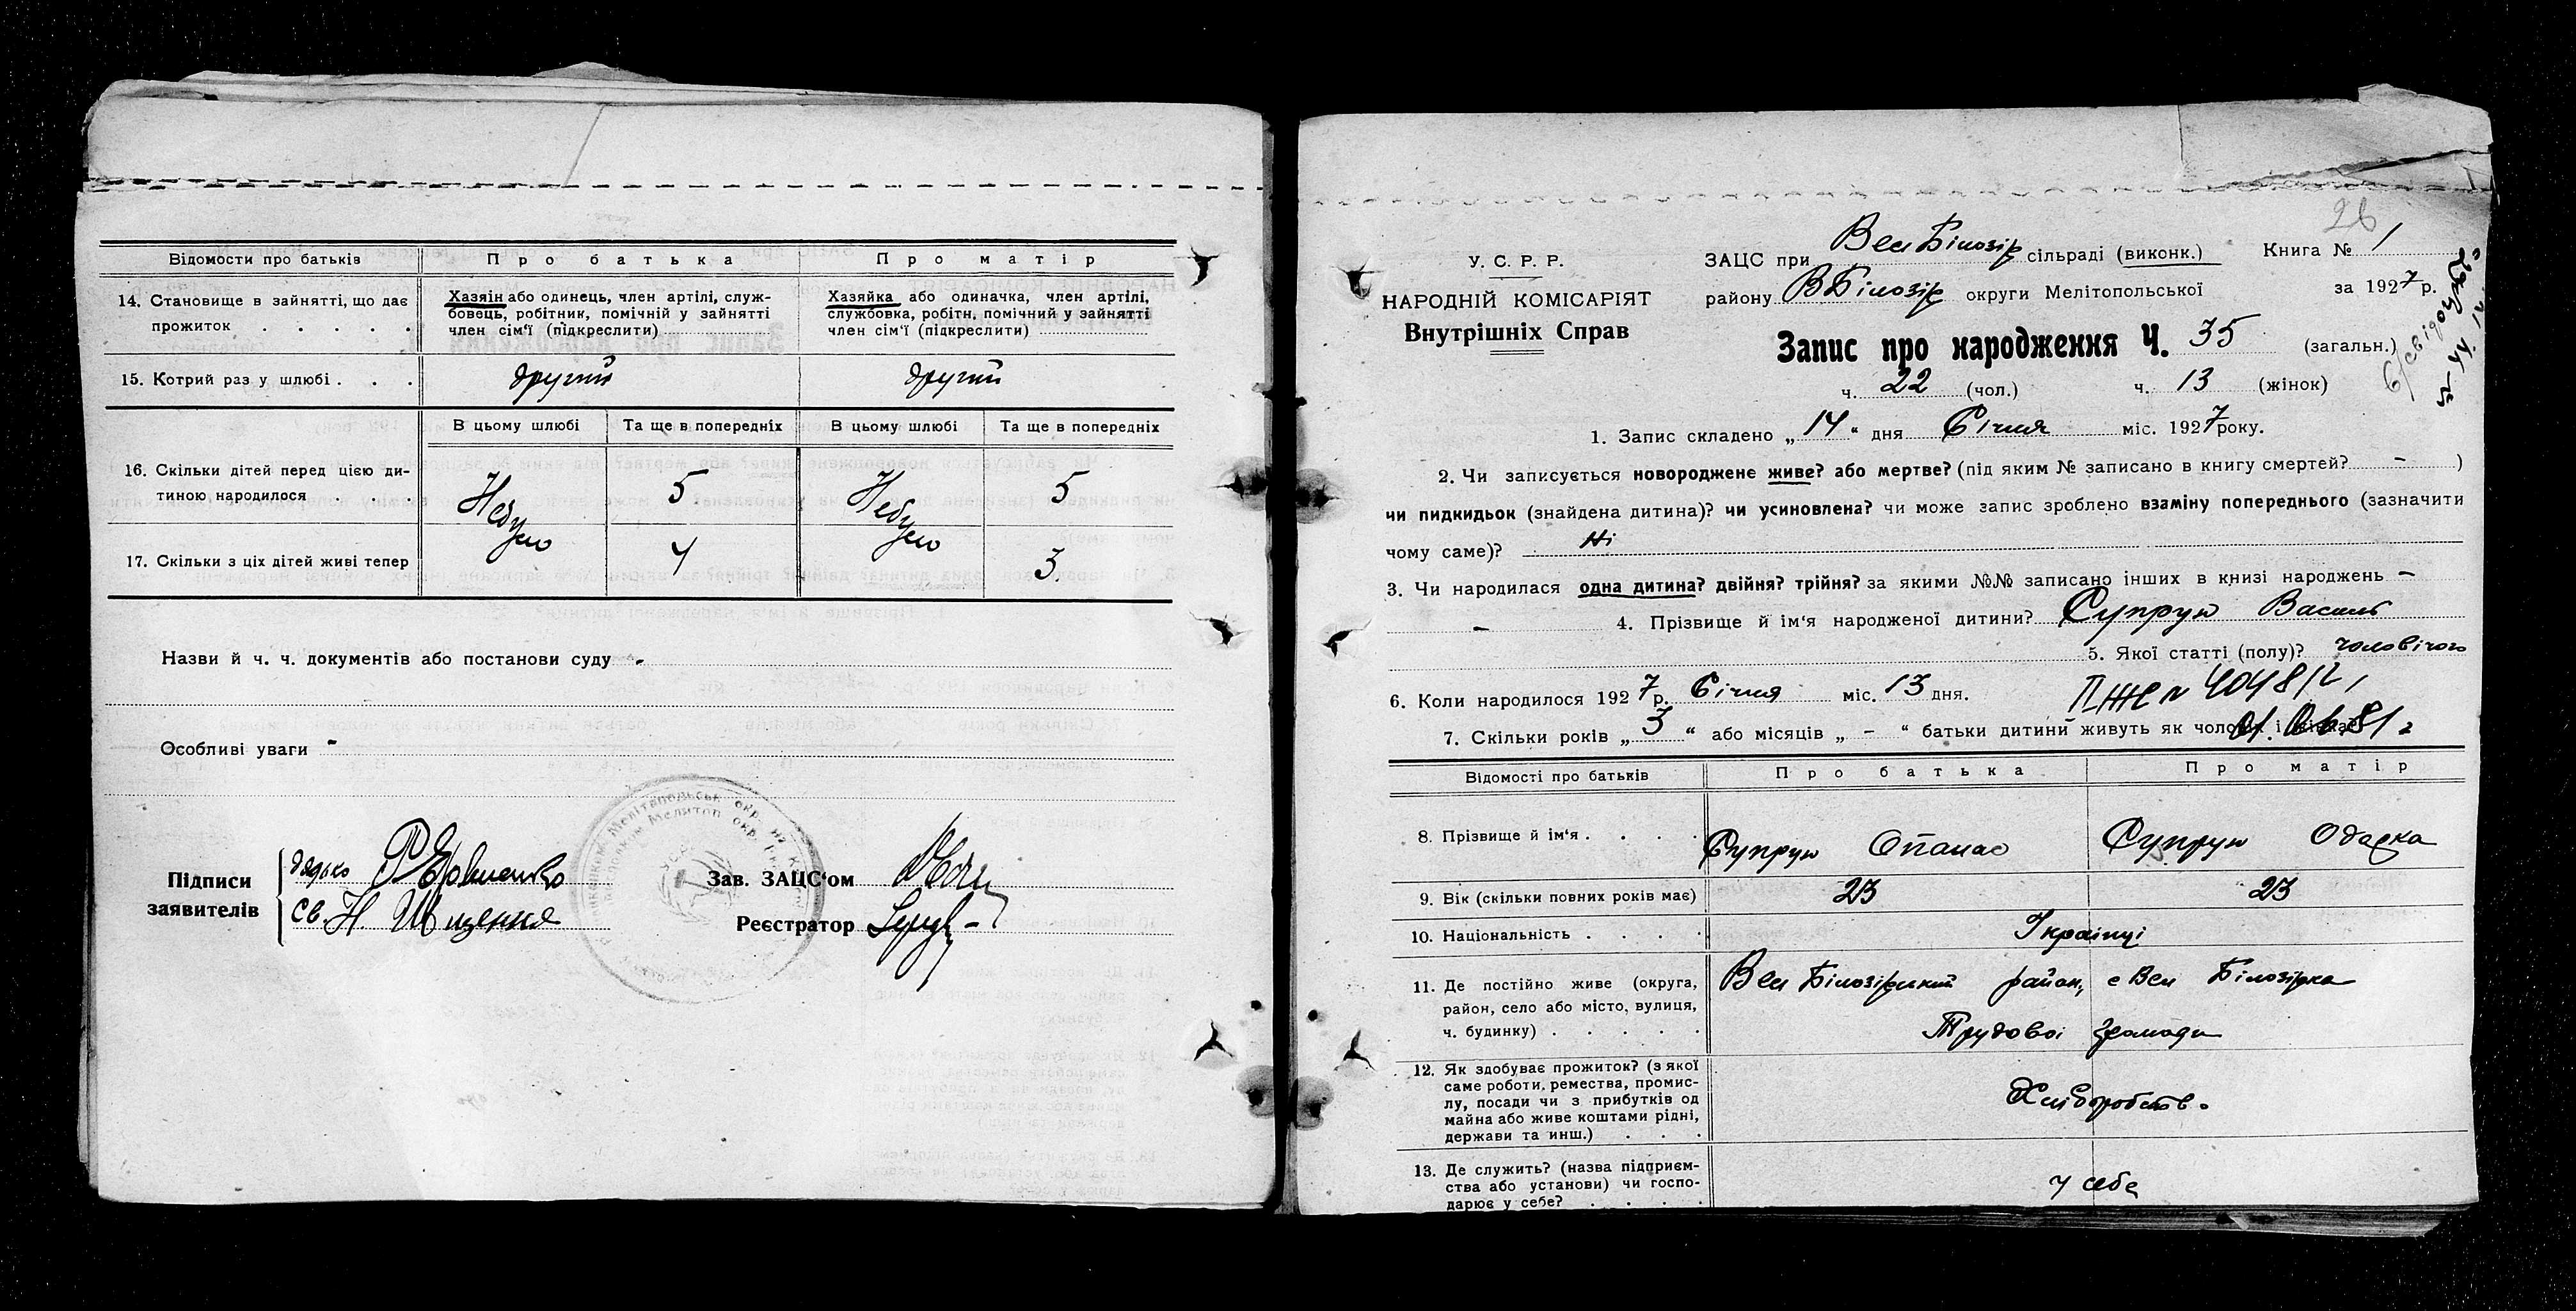 Відомости про батьків
Про батька
Про матір
14. Становище в зайнятті, що дає прожиток . . . . .
Хазяін або одинець, член артілі, служ-
бовець, робітник, помічній у зайнятті
член сім'ї (підкреслити)
Хазяйка або одиначка, член артілі,
службовка, робітн. помічний у зайнятті
член сім'ї (підкреслити)
15. Котрий раз у шлюбі . . .
другий
другий
В цьому шлюбі
Та ще в попередніх
В цьому шлюбі
Та ще в попередніх
16. Скільки дітей перед цією ди-
тиною народилося . . . .
Небуло
5
Небуло
5
17. Скільки з ціх дітей живі тепер
4
3
Назви й ч. ч. документів або постанови суду -
Особливі уваги -
Підписи
заявителів
дядько
св. Н. Іщенко
Зав. ЗАЦС'ом
Реєстратор
26
У. С. Р. Р.
НАРОДНІЙ КОМІСАРІЯТ
Внутрішніх Справ
ЗАЦС при Вел Білозір сільраді (виконк.)
Книга № 1
району В Білозір округи Мелітопольської
за 1927 р.
Запис про народження Ч. 35 (загальн.)
ч. 22 (чол.) ч. 13 (жінок)
1. Запис складено „14" дня Січня міс. 1927 року.
2. Чи записується новороджене живе? або мертве? (під яким № записано в книгу смертей? - )
чи пидкидьок (знайдена дитина)? чи усиновлена? чи може запис зроблено взаміну попереднього (зазначити
чому саме)? Ні
3. Чи народилася одна дитина? двійня? трійня? за якими №№ записано інших в книзі народжень -
- 4. Прізвище й ім'я народженої дитини? Супрун Василь
5. Якої статті (полу)? чоловічого
6. Коли народилося 1927 р. Січня міс. 13 дня.
7. Скільки років „3" або місяців „ - " батьки дитини живуть як чоловік і жінка?
Відомості про батьків
Про батька
Про матір
8. Прізвище й ім'я . . . .
Супрун Опанас
Супрун Одарка
9. Вік (скільки повних років має)
23
23
10. Національність . . . .
Українці
11. Де постійно живе (округа,
район, село або місто, вулиця,
ч. будинку) . . . . .
Вел Білозірський район, с Вел Білозірка
Трудової громади
12. Як здобуває прожиток? (з якої
саме роботи, ремества, промис-
лу, посади чи з прибутків од
майна або живе коштами рідні,
держави та инш.) . . .
Хліборобств.
13. Де служить? (назва підприєм-
ства або установи) чи госпо-
дарює у себе? . . . .
у себе